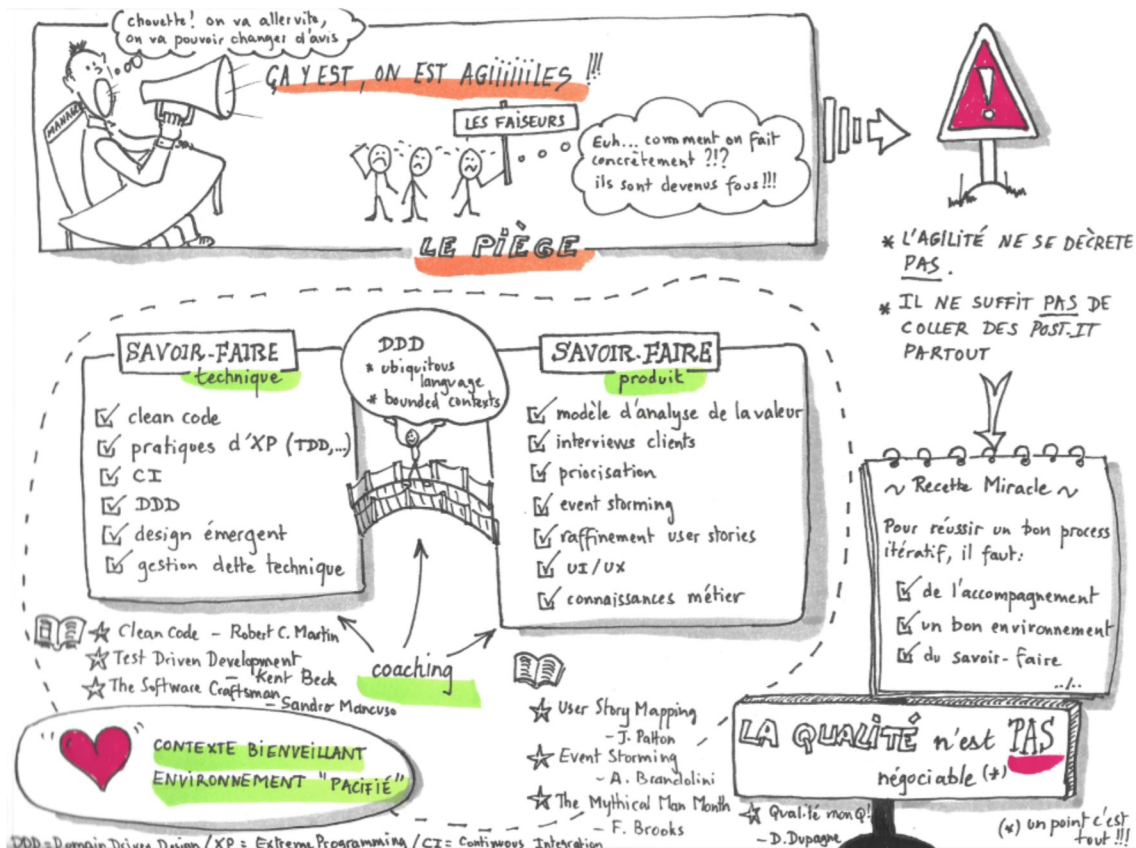 chouette! on va aller vite,
on va pouvoir changer d'avis
ÇA Y EST, ON EST AGiiiiiiLES !!!
MANAGER
LES FAiSEURS
Euh... comment on fait
concrètement ?!?
ils sont devenus fous!!!
LE PiÈGE
* L'AGILITÉ NE SE DÉCRETE
PAS.
* IL NE SUFFIT PAS DE
COLLER DES POST-IT
PARTOUT
SAVOIR-FAIRE
technique
clean code
pratiques d'XP (TDD,...)
CI
DDD
design émergent
gestion dette technique
DDD
* ubiquitous
language
* bounded contexts
SAVOIR-FAIRE
produit
modèle d'analyse de la valeur
interviews clients
priorisation
event storming
raffinement user stories
UI/UX
connaissances métier
~ Recette Miracle ~
Pour réussir un bon process
itératif, il faut:
de l'accompagnement
un bon environnement
du savoir-faire
../..
Clean Code - Robert C. Martin
Test Driven Development
- Kent Beck
The Software Craftsman
- Sandro Mancuso
coaching
User Story Mapping
- J. Patton
Event Storming
- A. Brandolini
The Mythical Man Month
- F. Brooks
CONTEXTE BIENVEILLANT
ENVIRONNEMENT "PACIFIÉ"
LA QUALiTÉ n'est PAS
négociable (*)
Qualité mon Q!
- D. Dupagne
(*) un point c'est
tout !!!
DDD = Domain Driven Design / XP = Extreme Programming / CI = Continuous Integration